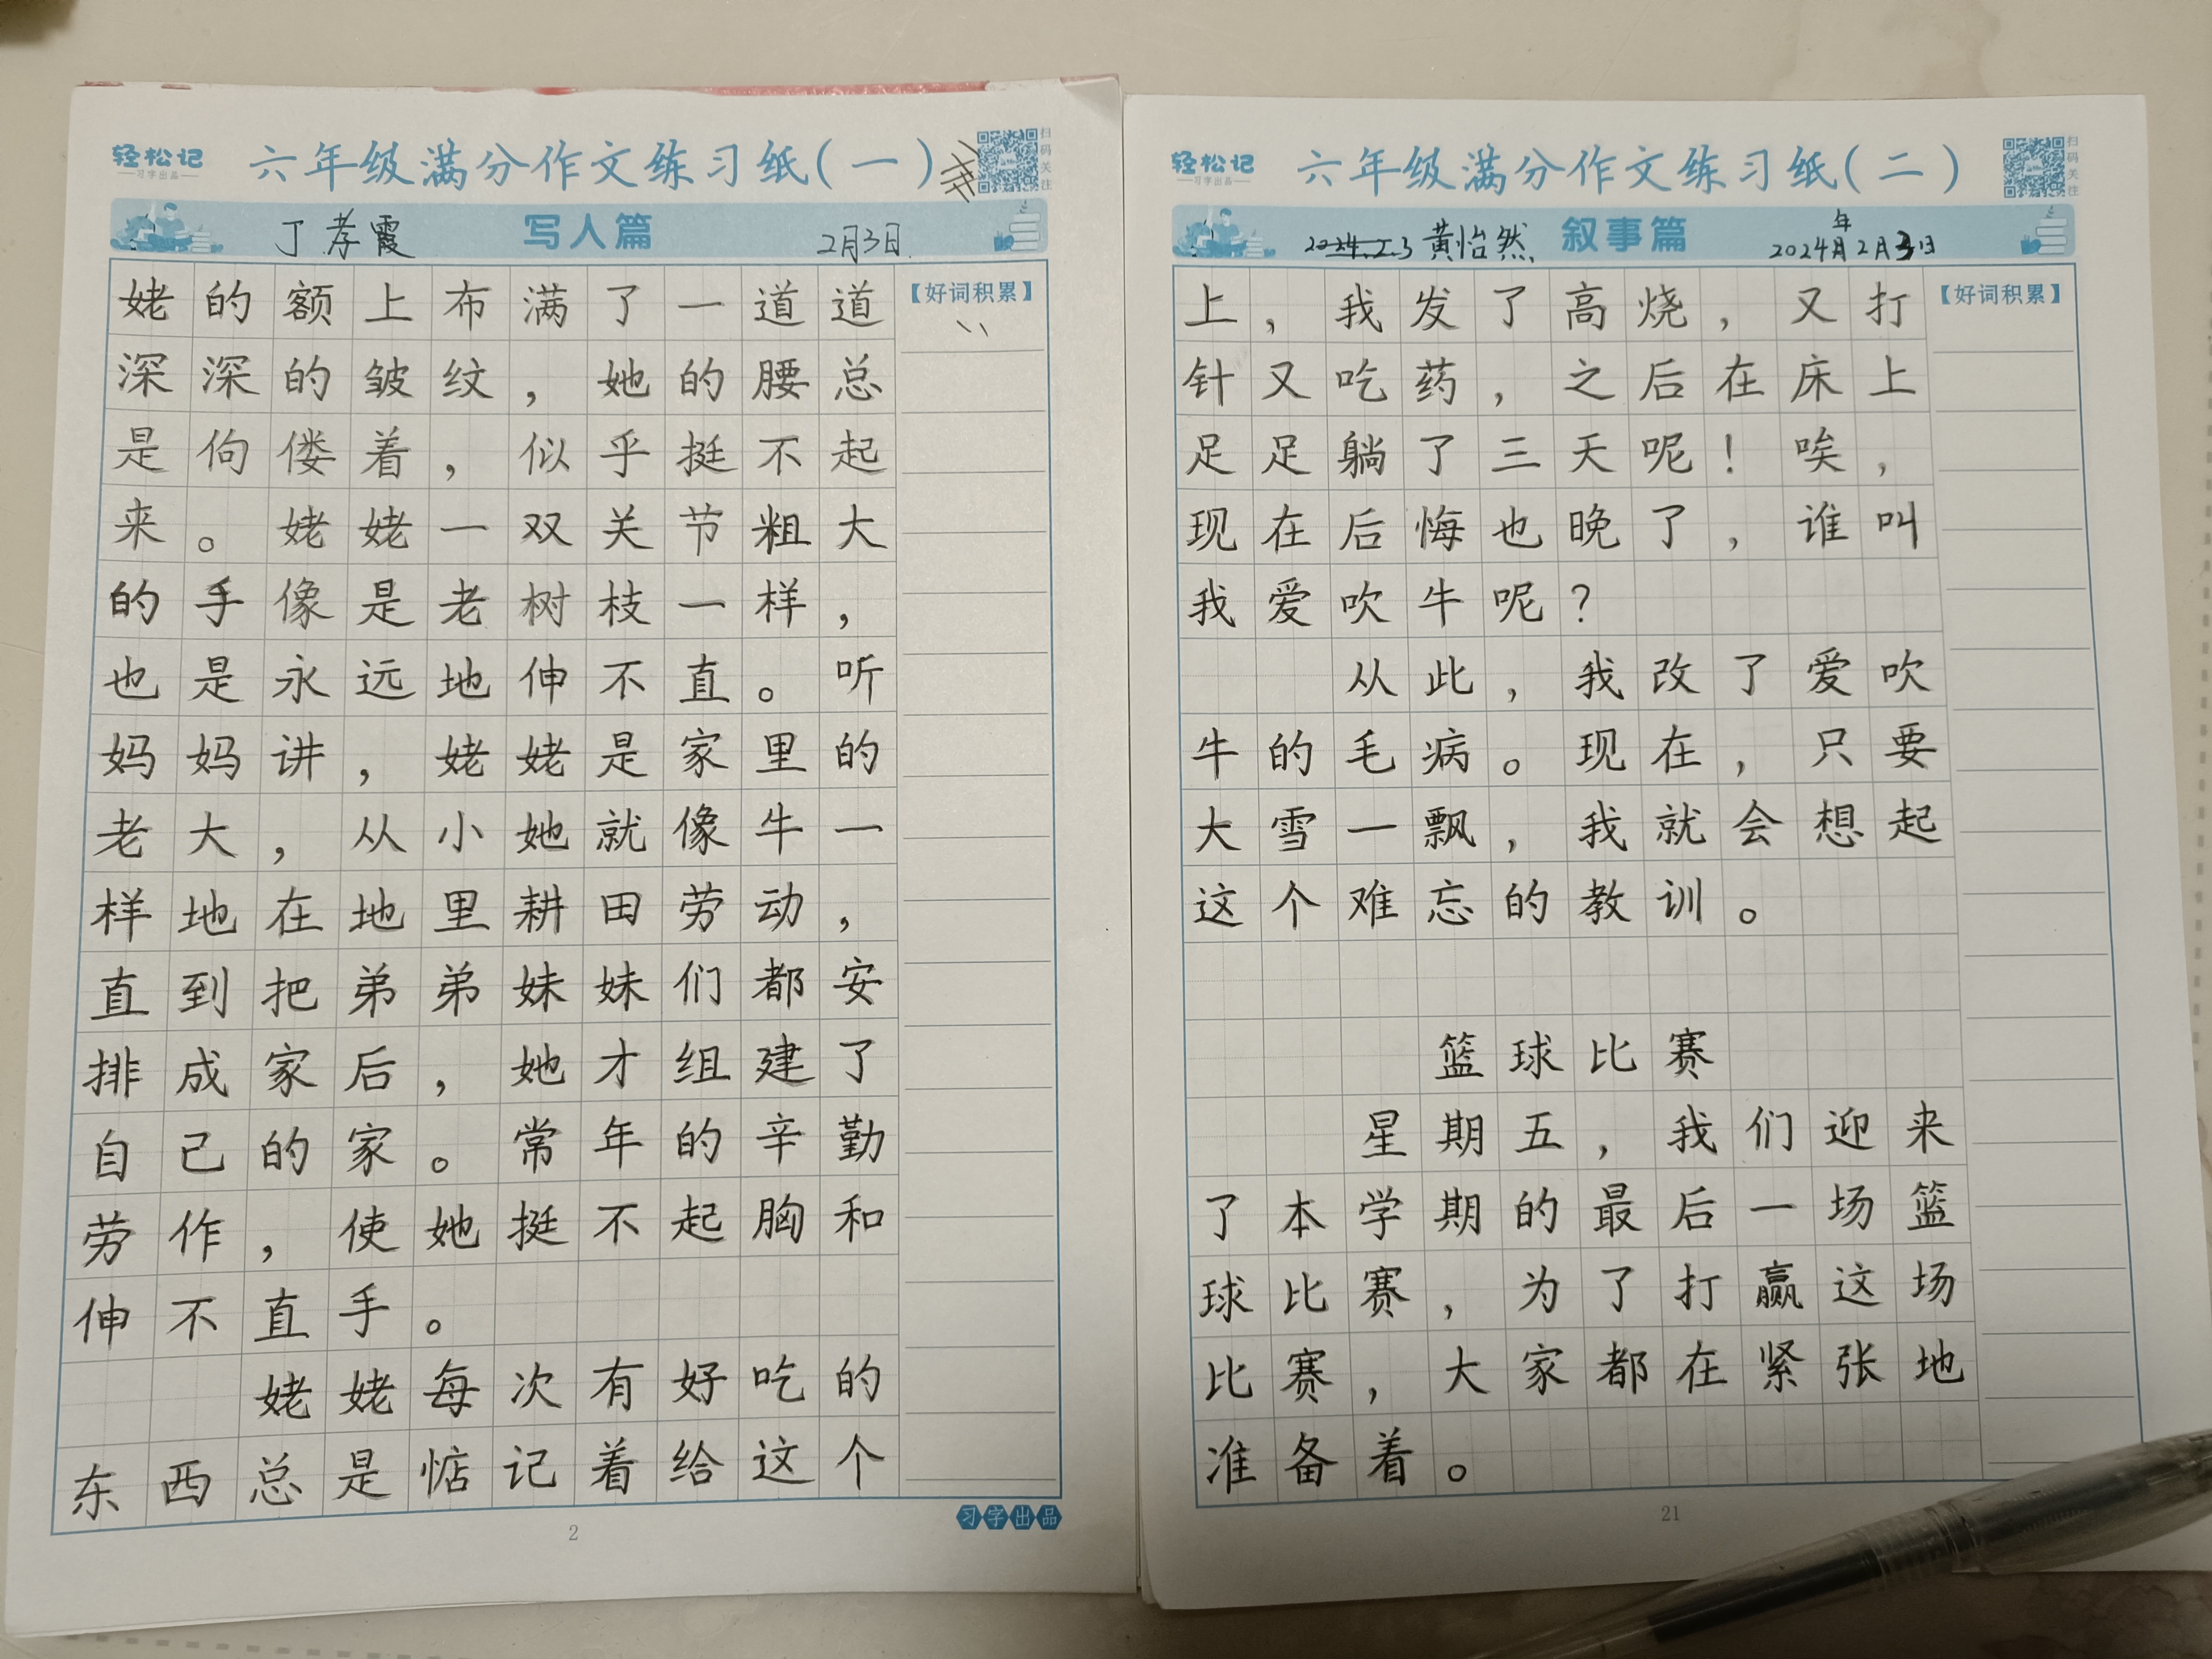 轻松记
习字出品
六年级满分作文练习纸(一)
扫码关注
丁孝霞
写人篇
2月3日
【好词积累】
姥的额上布满了一道道
深深的皱纹，她的腰总
是佝偻着，似乎挺不起
来。姥姥一双关节粗大
的手像是老树枝一样，
也是永远地伸不直。听
妈妈讲，姥姥是家里的
老大，从小她就像牛一
样地在地里耕田劳动，
直到把弟弟妹妹们都安
排成家后，她才组建了
自己的家。常年的辛勤
劳作，使她挺不起胸和
伸不直手。
姥姥每次有好吃的
东西总是惦记着给这个
2
习字出品
轻松记
习字出品
六年级满分作文练习纸(二)
扫码关注
2024.2.3 黄怡然
叙事篇
2024年2月3日
【好词积累】
上，我发了高烧，又打
针又吃药，之后在床上
足足躺了三天呢！唉，
现在后悔也晚了，谁叫
我爱吹牛呢？
从此，我改了爱吹
牛的毛病。现在，只要
大雪一飘，我就会想起
这个难忘的教训。
篮球比赛
星期五，我们迎来
了本学期的最后一场篮
球比赛，为了打赢这场
比赛，大家都在紧张地
准备着。
21